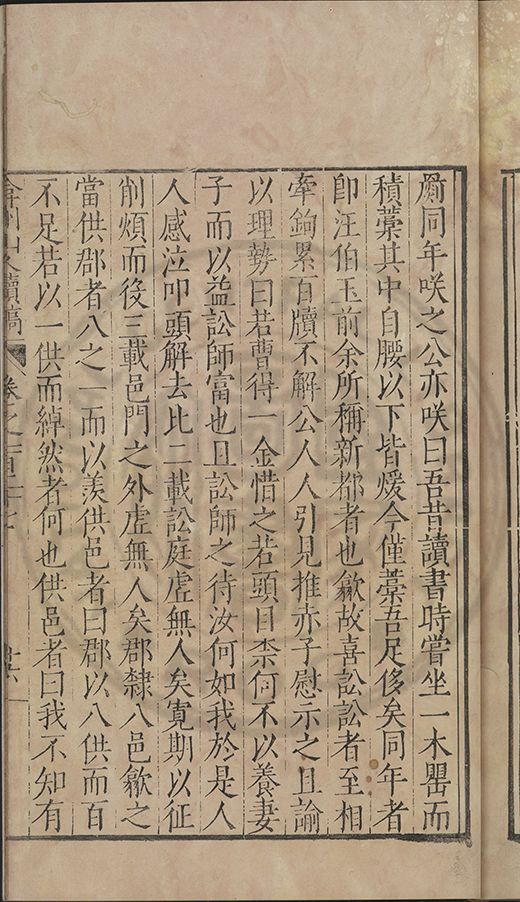 罽同年咲之公亦咲曰吾昔讀書時嘗坐一木罌而
積藁其中自腰以下皆煖今僅藁吾足侈矣同年者
卽汪伯玉前余所稱新都者也歙故喜訟訟者至相
牽鉤累百牘不解公人人引見推赤子慰示之且諭
以理勢曰若曹得一金惜之若頭目柰何不以養妻
子而以益訟師富也且訟師之待汝何如我於是人
人感泣叩頭解去比二載訟庭虛無人矣寬期以征
削煩而後三載邑門之外虛無人矣郡隸八邑歙之
當供郡者八之一而以羨供邑者曰郡以八供而百
不足若以一供而綽然者何也供邑者曰我不知有
弇州山人續稿 卷之一百三十七 廿六